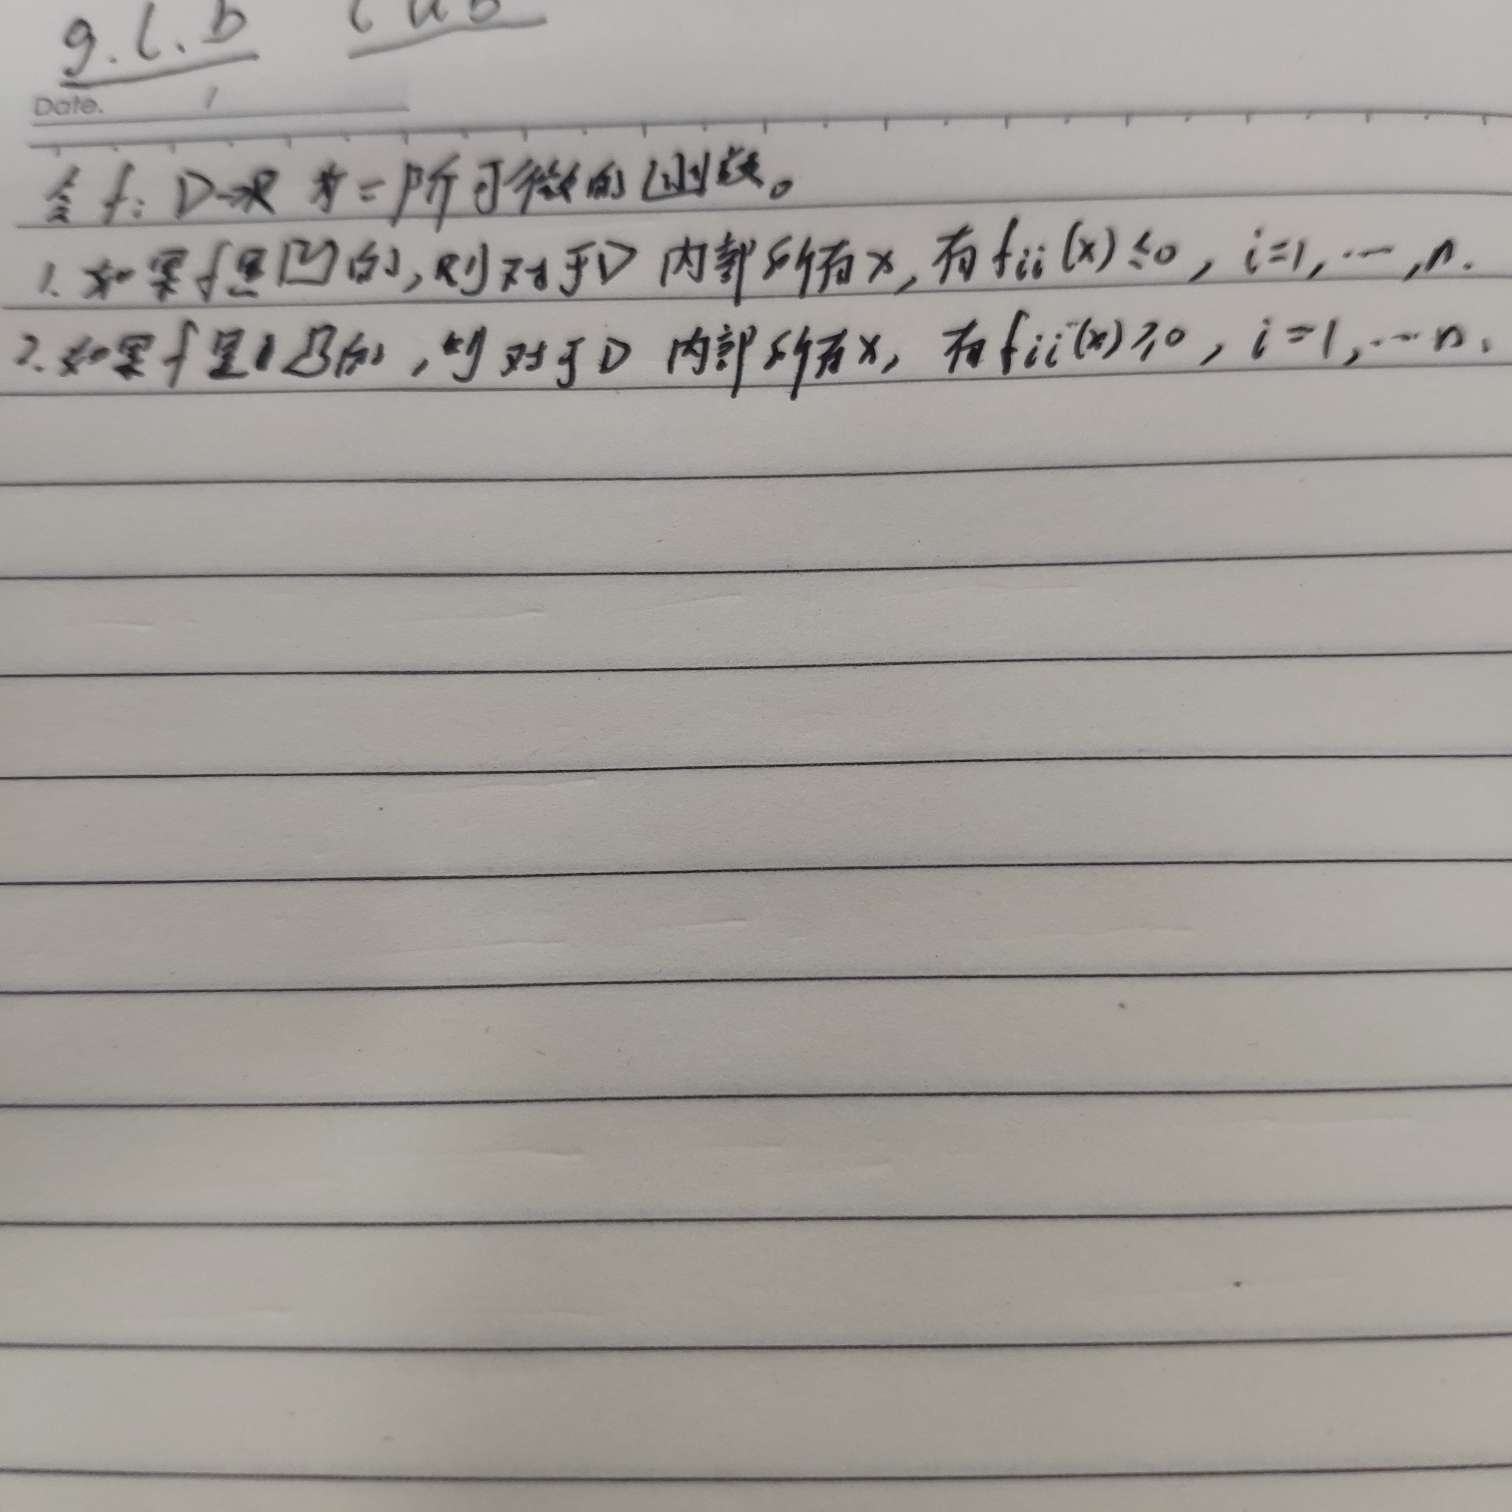 g.l.b lub
Date.
令 f: D→R 为二阶可微的函数。
1. 如果f是凹的,则对于D 内部所有x,有fii(x)≤0, i=1,…,n.
2. 如果f是凸的,则对于D 内部所有x, 有fii(x)≥0, i=1,…n.